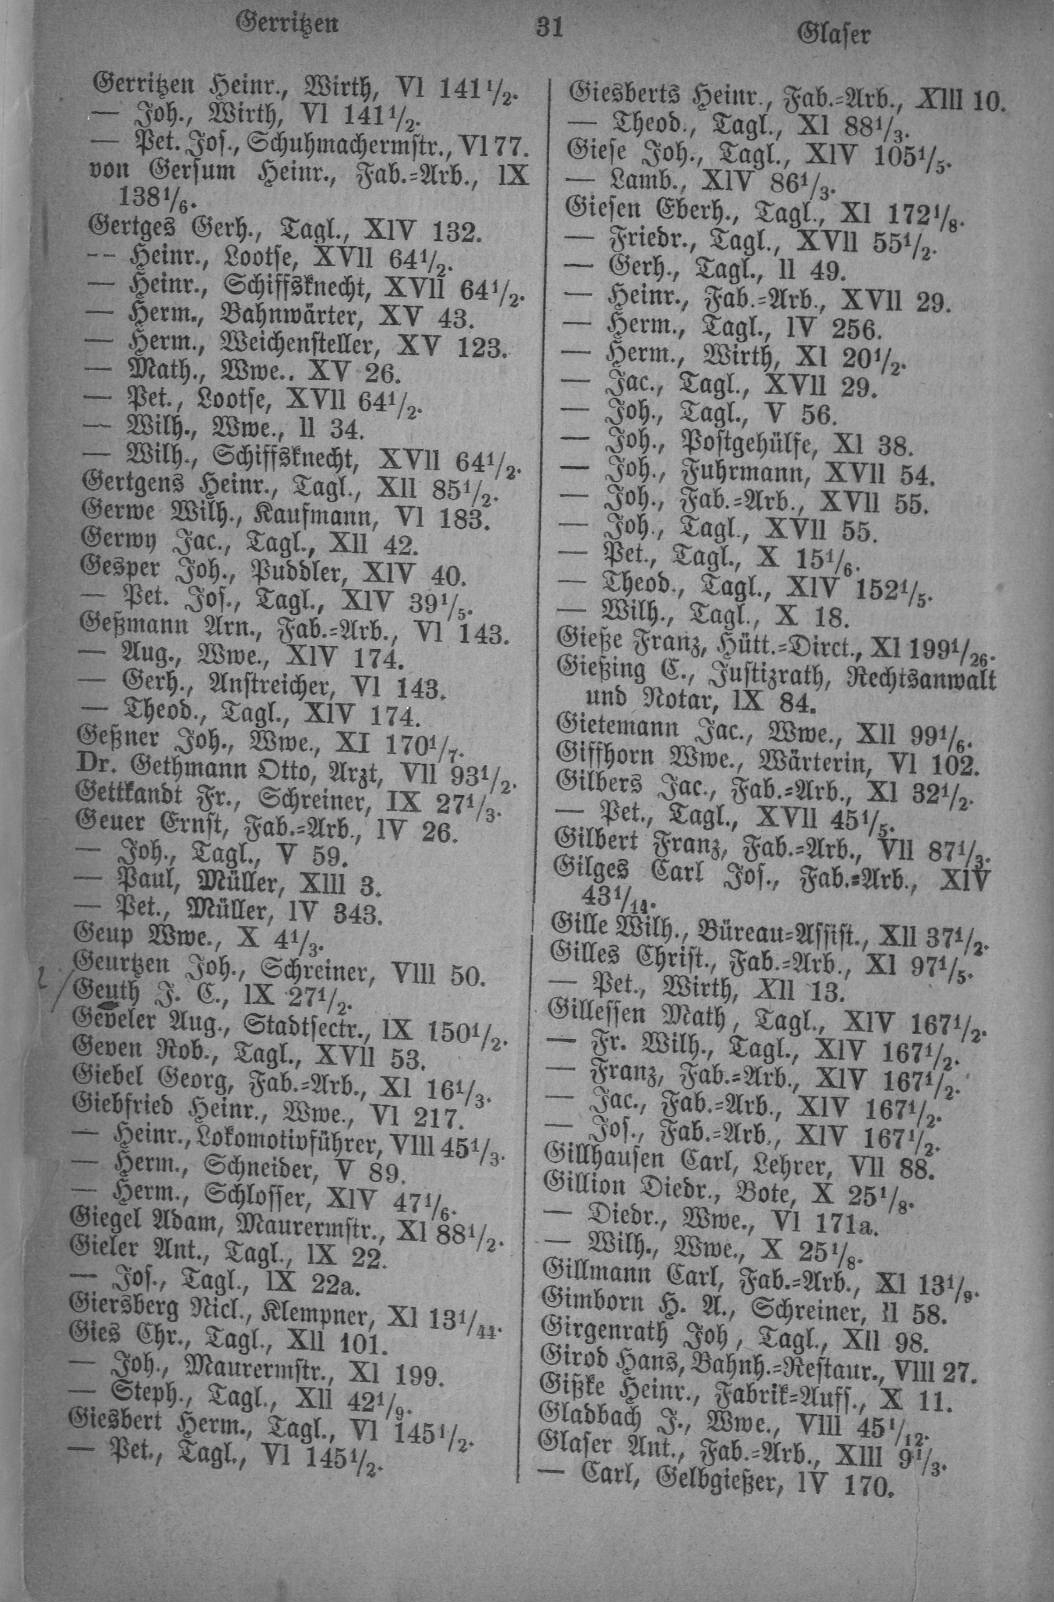 Gerritzen
31
Glaser
Gerritzen Heinr., Wirth, VI 141 1/2.
— Joh., Wirth, VI 141 1/2.
— Pet. Jos., Schuhmachermstr., VI 77.
von Gersum Heinr., Fab.-Arb., IX
138 1/6.
Gertges Gerh., Tagl., XIV 132.
-- Heinr., Lootse, XVII 64 1/2.
— Heinr., Schiffsknecht, XVII 64 1/2.
— Herm., Bahnwärter, XV 43.
— Herm., Weichensteller, XV 123.
— Math., Wwe.. XV 26.
— Pet., Lootse, XVII 64 1/2.
— Wilh., Wwe., II 34.
— Wilh., Schiffsknecht, XVII 64 1/2.
Gertgens Heinr., Tagl., XII 85 1/2.
Gerwe Wilh., Kaufmann, VI 183.
Gerwy Jac., Tagl., XII 42.
Gesper Joh., Puddler, XIV 40.
— Pet. Jos., Tagl., XIV 39 1/5.
Geßmann Arn., Fab.-Arb., VI 143.
— Aug., Wwe., XIV 174.
— Gerh., Anstreicher, VI 143.
— Theod., Tagl., XIV 174.
Geßner Joh., Wwe., XI 170 1/7.
Dr. Gethmann Otto, Arzt, VII 93 1/2.
Gettkandt Fr., Schreiner, IX 27 1/3.
Geuer Ernst, Fab.-Arb., IV 26.
— Joh., Tagl., V 59.
— Paul, Müller, XIII 3.
— Pet., Müller, IV 343.
Geup Wwe., X 4 1/3.
Geurtzen Joh., Schreiner, VIII 50.
Geuth J. C., IX 27 1/2.
Geveler Aug., Stadtsectr., IX 150 1/2.
Geven Rob., Tagl., XVII 53.
Giebel Georg, Fab.-Arb., XI 16 1/3.
Giebfried Heinr., Wwe., VI 217.
— Heinr., Lokomotivführer, VIII 45 1/3.
— Herm., Schneider, V 89.
— Herm., Schlosser, XIV 47 1/6.
Giegel Adam, Maurermstr., XI 88 1/2.
Gieler Ant., Tagl., IX 22.
— Jos., Tagl., IX 22a.
Giersberg Nicl., Klempner, XI 13 1/44.
Gies Chr., Tagl., XII 101.
— Joh., Maurermstr., XI 199.
— Steph., Tagl., XII 42 1/9.
Giesbert Herm., Tagl., VI 145 1/2.
— Pet., Tagl., VI 145 1/2.
Giesberts Heinr., Fab.-Arb., XIII 10.
— Theod., Tagl., XI 88 1/3.
Giese Joh., Tagl., XIV 105 1/5.
— Lamb., XIV 86 1/3.
Giesen Eberh., Tagl., XI 172 1/8.
— Friedr., Tagl., XVII 55 1/2.
— Gerh., Tagl., II 49.
— Heinr., Fab.-Arb., XVII 29.
— Herm., Tagl., IV 256.
— Herm., Wirth, XI 20 1/2.
— Jac., Tagl., XVII 29.
— Joh., Tagl., V 56.
— Joh., Postgehülfe, XI 38.
— Joh., Fuhrmann, XVII 54.
— Joh., Fab.-Arb., XVII 55.
— Joh., Tagl., XVII 55.
— Pet., Tagl., X 15 1/6.
— Theod., Tagl., XIV 152 1/5.
— Wilh., Tagl., X 18.
Gieße Franz, Hütt.-Dirct., XI 199 1/26.
Gießing C., Justizrath, Rechtsanwalt
und Notar, IX 84.
Gietemann Jac., Wwe., XII 99 1/6.
Giffhorn Wwe., Wärterin, VI 102.
Gilbers Jac., Fab.-Arb., XI 32 1/2.
— Pet., Tagl., XVII 45 1/5.
Gilbert Franz, Fab.-Arb., VII 87 1/3.
Gilges Carl Jos., Fab.-Arb., XIV
43 1/14.
Gille Wilh., Büreau-Assist., XII 37 1/2.
Gilles Christ., Fab.-Arb., XI 97 1/5.
— Pet., Wirth, XII 13.
Gillessen Math, Tagl., XIV 167 1/2.
— Fr. Wilh., Tagl., XIV 167 1/2.
— Franz, Fab.-Arb., XIV 167 1/2.
— Jac., Fab.-Arb., XIV 167 1/2.
— Jos., Fab.-Arb., XIV 167 1/2.
Gillhausen Carl, Lehrer, VII 88.
Gillion Diedr., Bote, X 25 1/8.
— Diedr., Wwe., VI 171a.
— Wilh., Wwe., X 25 1/8.
Gillmann Carl, Fab.-Arb., XI 13 1/9.
Gimborn H. A., Schreiner, II 58.
Girgenrath Joh, Tagl., XII 98.
Girod Hans, Bahnh.-Restaur., VIII 27.
Gißke Heinr., Fabrik-Auff., X 11.
Gladbach J., Wwe., VIII 45 1/12.
Glaser Ant., Fab.-Arb., XIII 9 1/3.
— Carl, Gelbgießer, IV 170.